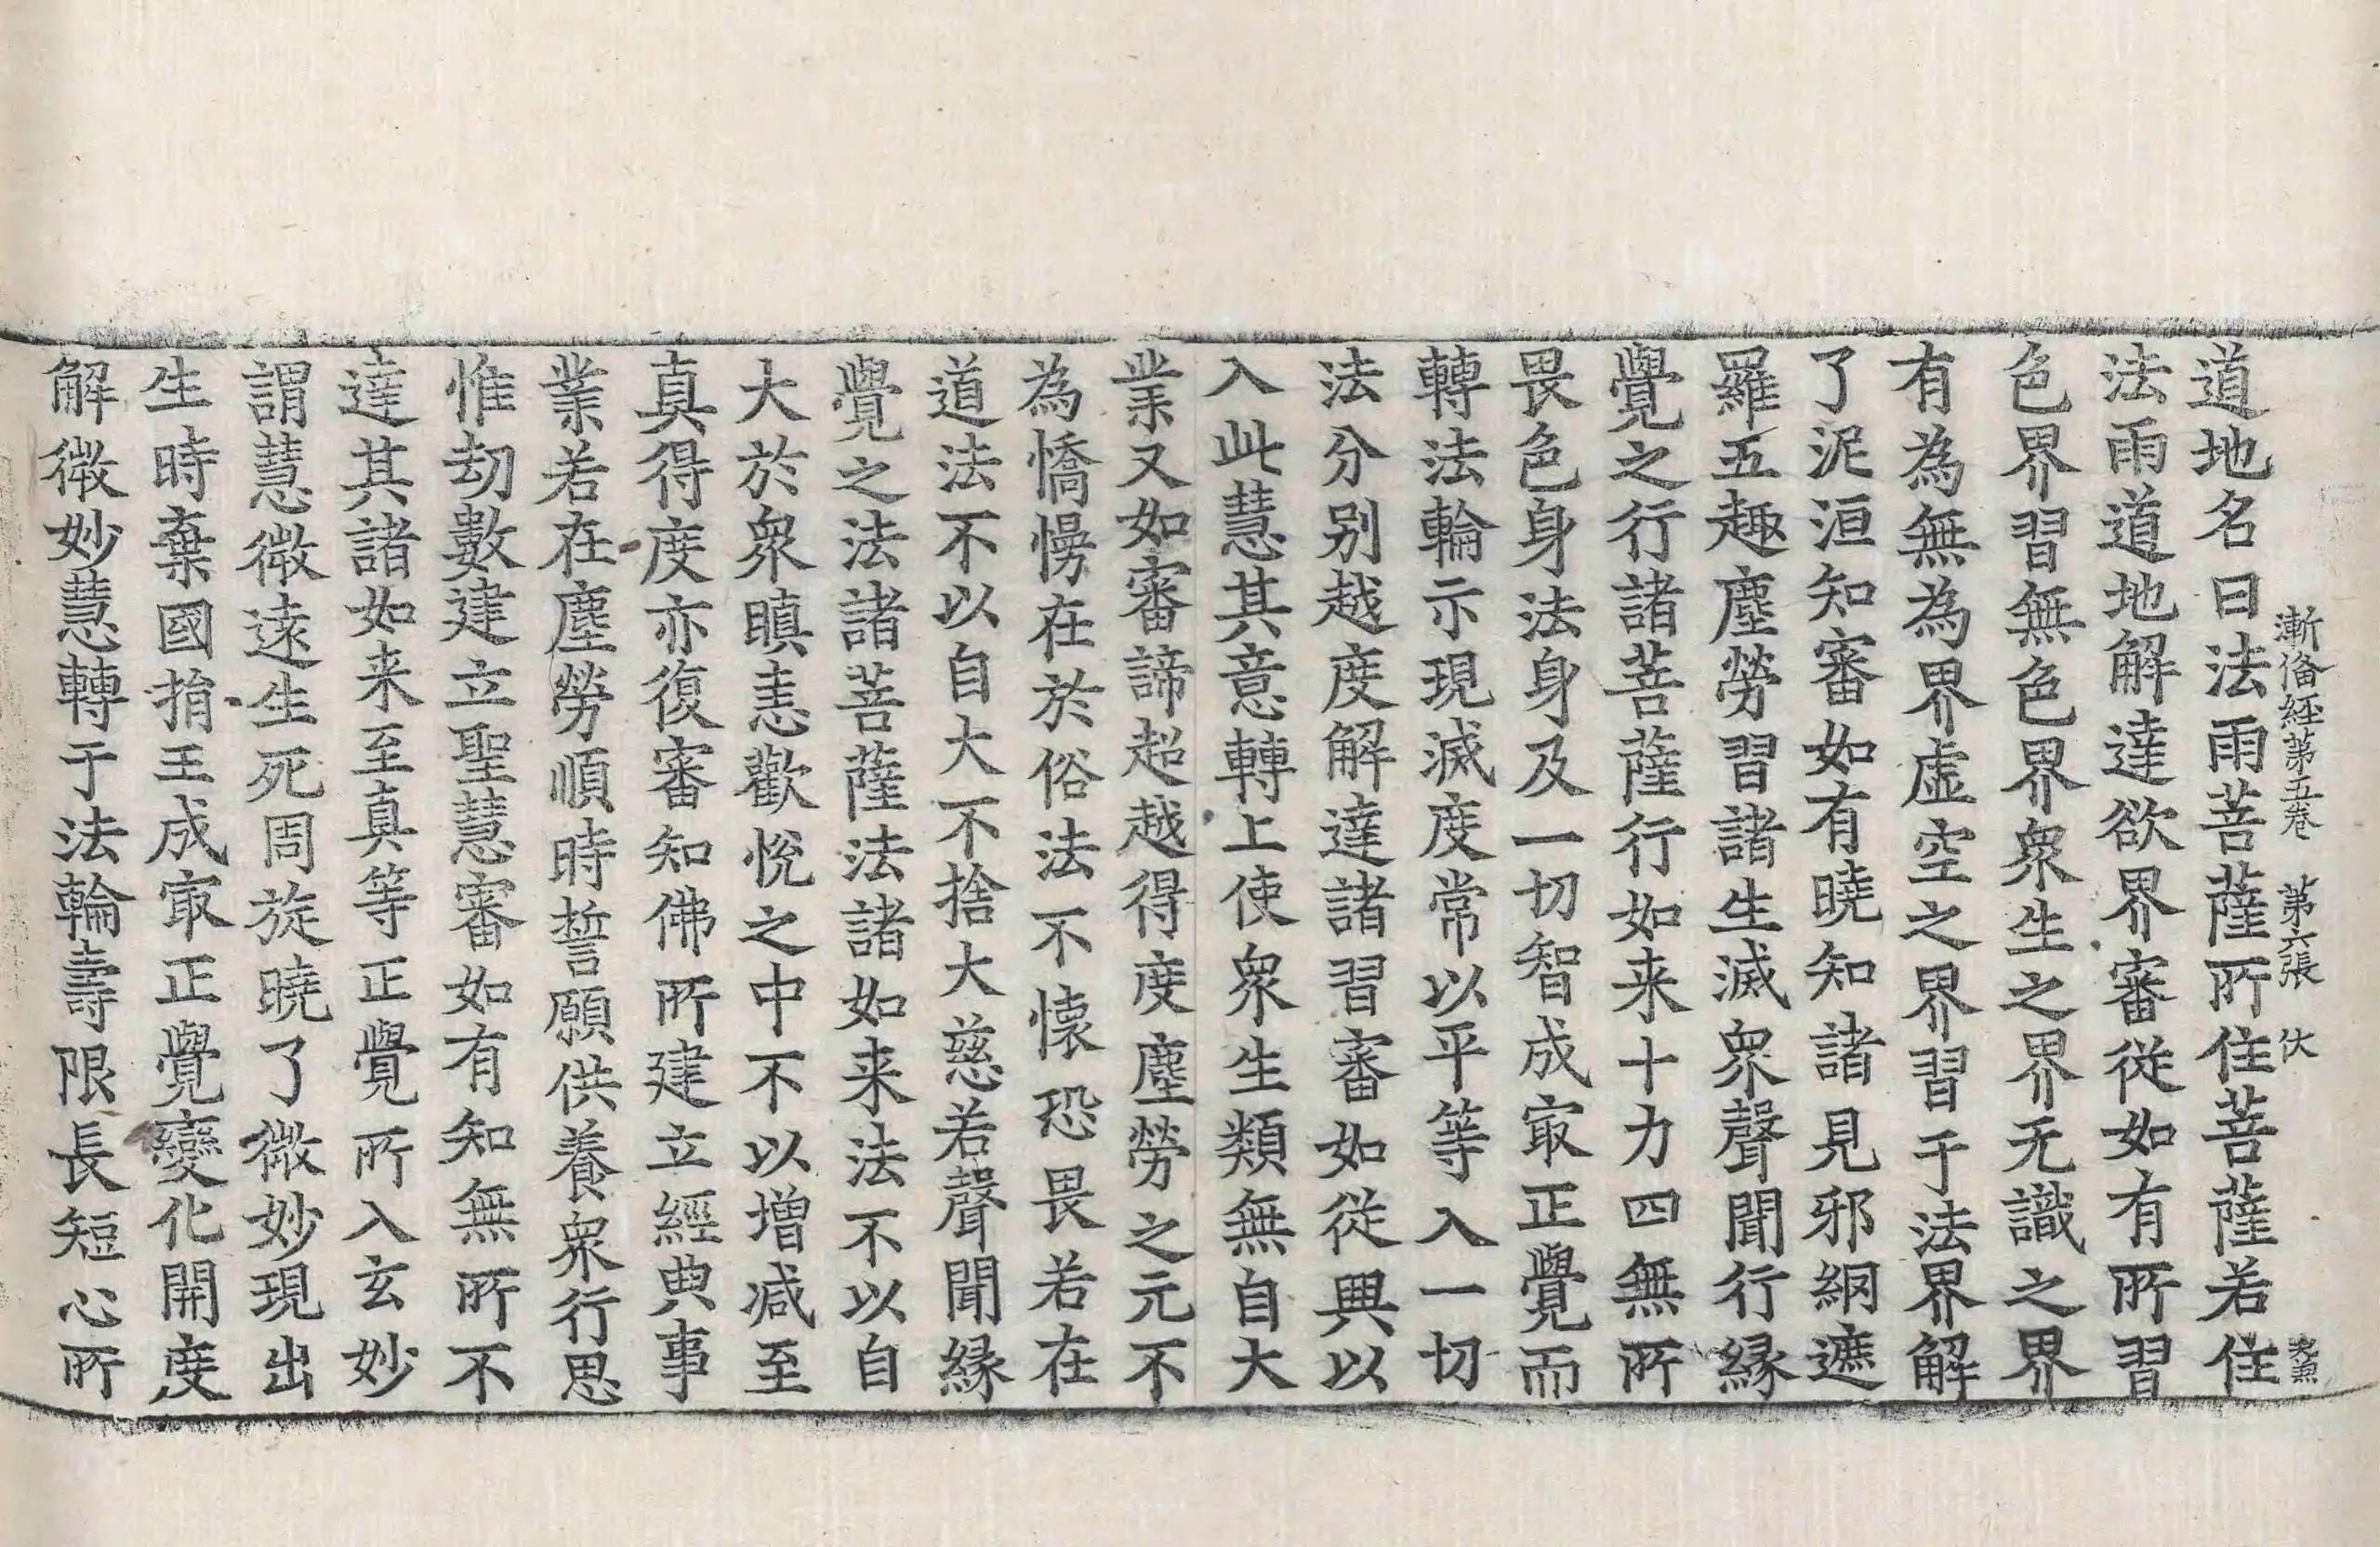 漸俻経苐五巻 苐六張 伏
道地名曰法雨菩薩所住菩薩若住
法雨道地解達欲界審従如有所習
色界習無色界衆生之界无識之界
有為無為界虚空之界習于法界解
了泥洹知審如有曉知諸見邪網遮
羅五趣塵勞習諸生滅衆聲聞行縁
覺之行諸菩薩行如来十力四無所
畏色身法身及一切智成㝡正覺而
轉法輪示現滅度常以平等入一切
法分别越度解達諸習審如従興以
入此慧其意轉上使衆生類無自大
業又如審諦超越得度塵勞之元不
為憍慢在於俗法不懐恐畏若在
道法不以自大不捨大慈若聲聞縁
覺之法諸菩薩法諸如来法不以自
大於衆瞋恚歡恱之中不以增减至
真得度亦復審知佛所建立經典事
業若在塵勞順時誓願供養衆行思
惟劫數建立聖慧審如有知無所不
達其諸如来至真等正覺所入玄妙
謂慧微逺生死周旋曉了微妙現出
生時棄國捐王成㝡正覺變化開度
解微妙慧轉于法輪壽限長短心所